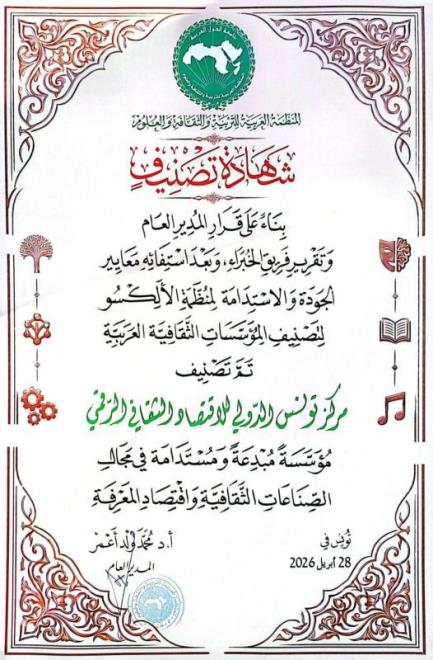 المنظمة العربية للتربية والثقافة والعلوم
شهادة تصنيف
بناءً على قرار المدير العام
وتقرير فريق الخبراء، وبعد استيفائه معايير
الجودة والاستدامة لمنظمة الألكسو
لتصنيف المؤسسات الثقافية العربية
تمّ تصنيف
مركز تونس الدولي للاقتصاد الثقافي الرقمي
مؤسسةً مبدعةً ومستدامة في مجال
الصناعات الثقافية واقتصاد المعرفة
تونس في
28 أبريل 2026
أ.د محمد ولد أعمر
المدير العام